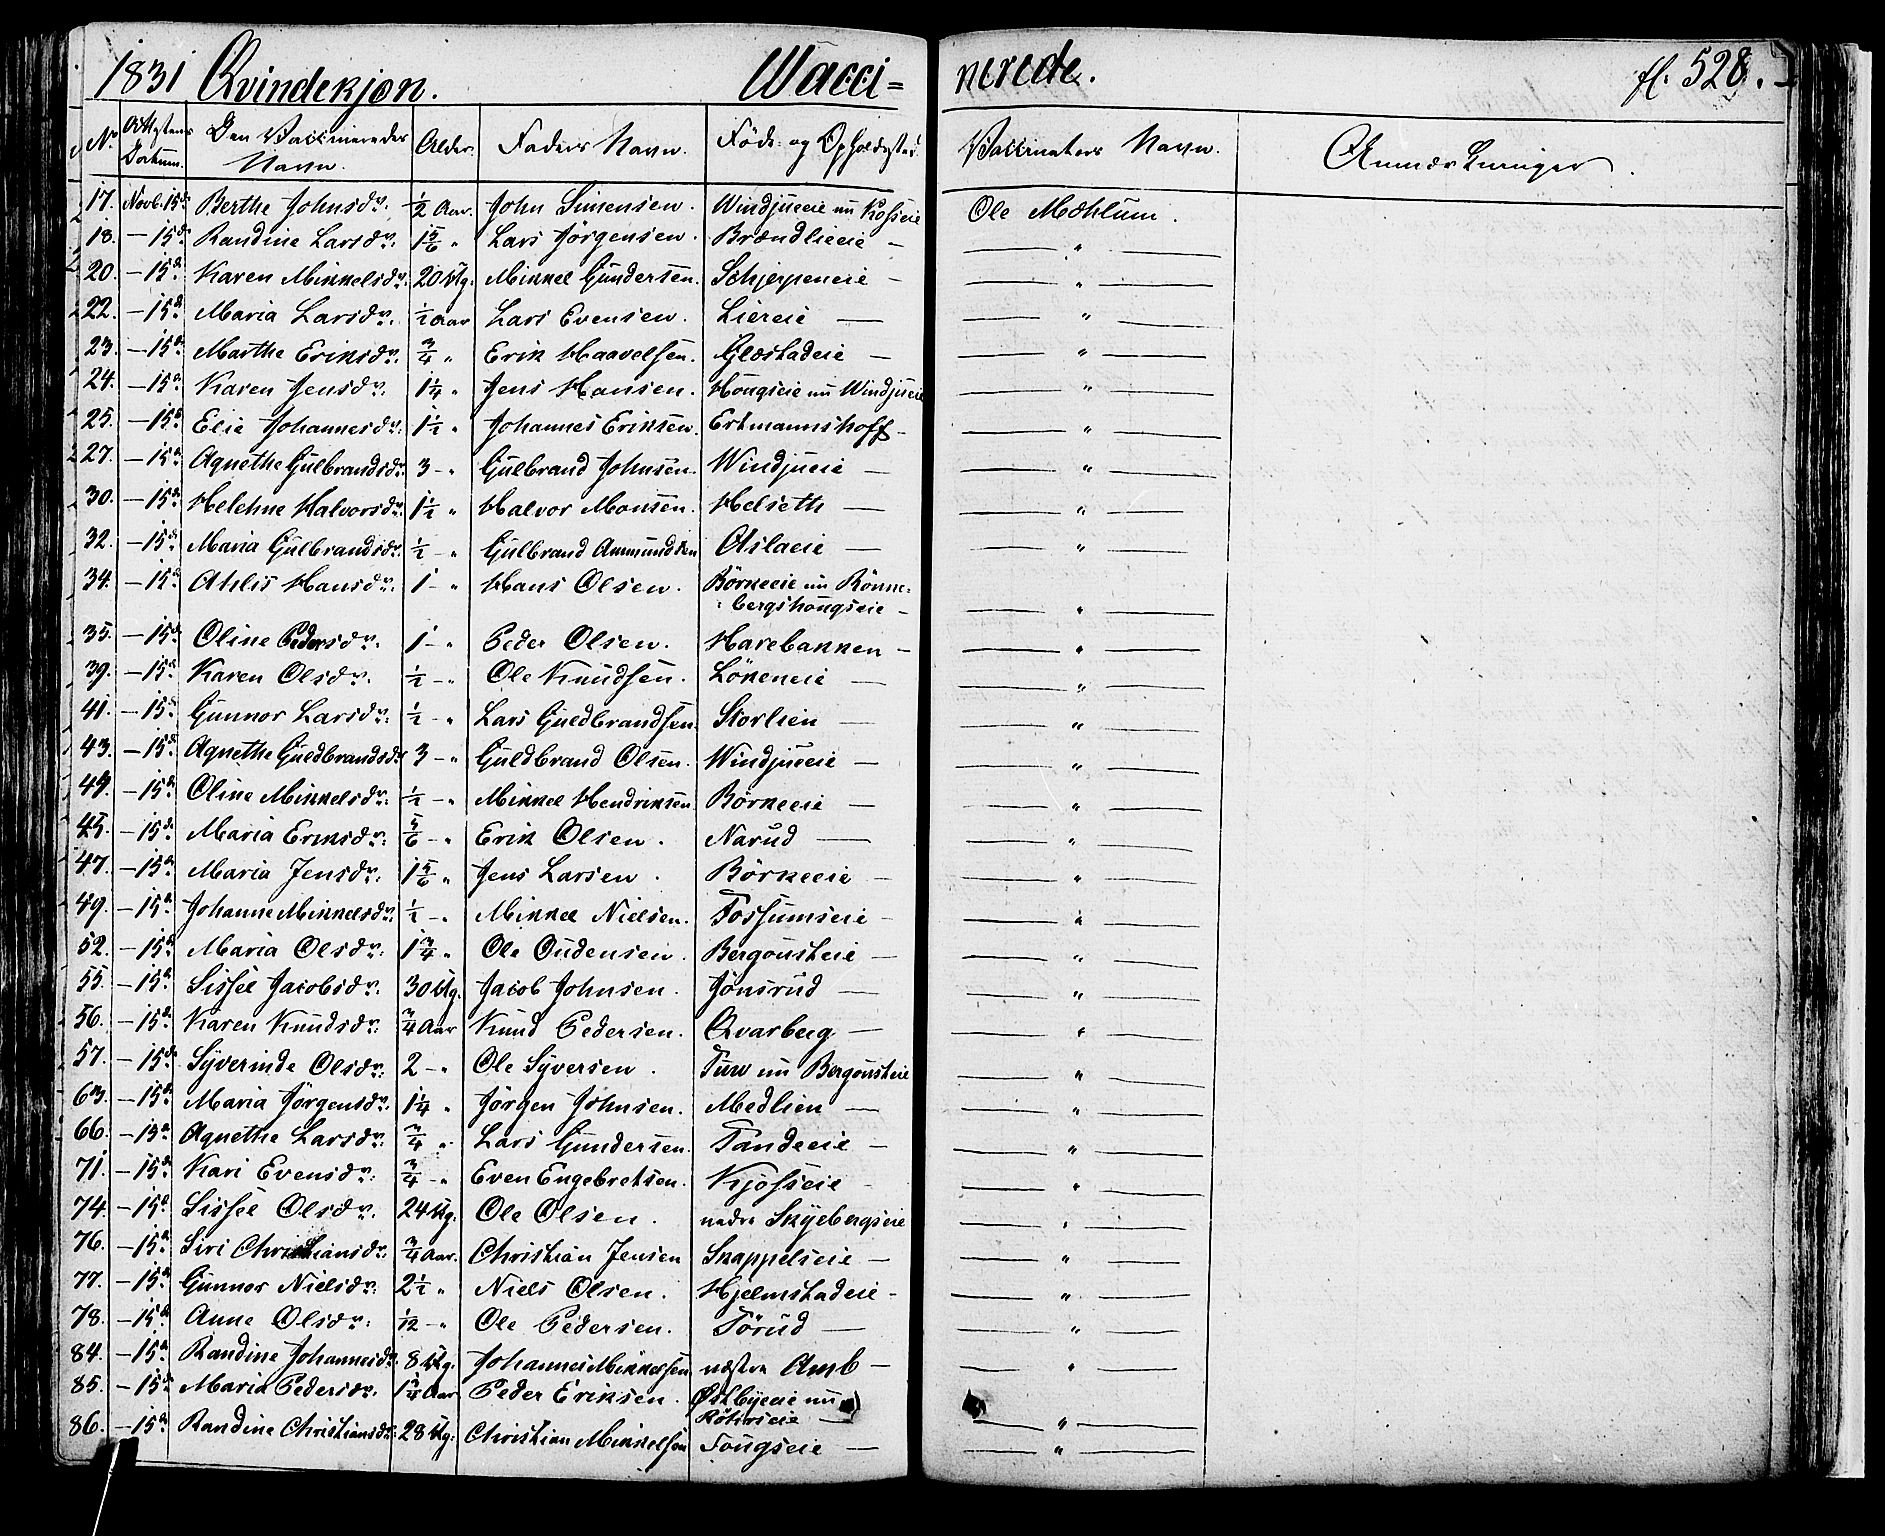 1831 Qvindekjøn. Wacci= nerede. fl. 528.
No Attestens Datum. Den Vaccineredes Navn. Alder. Faders Navn. Føde- og Opholdssted. Vaccinateurs Navn. Anmærkninger.
17. Novb. 15de Berthe Johnsdr. ½ Aar. John Simensen. Windjueeie nu Kosseie Ole Mæhlum.
18. — 15de Randine Larsdr. 1 5/6 „ Lars Jörgensen. Brændlieeie — — „ —
20. — 15de Karen Mikkelsdr. 20 Ug. Mikkel Gundersen. Schjerpeneie — — „ —
22. — 15de Maria Larsdr. ½ Aar Lars Evensen. Liereie — — „ —
23. — 15de Marthe Eriksdr. ¾ „ Erik Haavelsen. Glæstadeie — — „ —
24. — 15de Karen Jensdr. 1¼ „ Jens Hansen. Hougseie nu Windjueeie — „ —
25. — 15de Elie Johannesdr. 1½ „ Johannes Eriksen. Ertmannshoff — — „ —
27. — 15de Agnethe Gulbrandsdr. 3 — „ Gulbrand Johnsen. Windjueie — — „ —
30. — 15de Helehne Halvorsdr. 1½ „ Halvor Monsen. Helseth — — „ —
32. — 15de Maria Gulbrandsdr. ½ — „ Gulbrand Ammundsen Aslaeie — — „ —
34. — 15de Ahlis Hansdr. 1 — „ Hans Olsen. Börkeeie nu Rönne=
bergshougseie — — „ —
35. — 15de Oline Pedersdr. 1 — „ Peder Olsen. Harebakken — — „ —
39. — 15de Karen Olsdr. ½ — „ Ole Knudsen. Lökeneie — — „ —
41. — 15de Gunnor Larsdr. ½ — „ Lars Guldbrandsen. Storlien — — „ —
43. — 15de Agnethe Guldbrandsdr. 3 — „ Guldbrand Olsen. Windjueeie — — „ —
44. — 15de Oline Mikkelsdr. ½ — „ Mikkel Hendriksen. Börkeeie — — „ —
45. — 15de Maria Eriksdr. 5/6 — „ Erik Olsen. Narud — — „ —
47. — 15de Maria Jensdr. 1 5/6 „ Jens Larsen. Börkeeie — — „ —
49. — 15de Johanne Mikkelsdr. ½ — „ Mikkel Nielsen. Fossumseie — — „ —
52. — 15de Maria Olsdr. 1¾ „ Ole Oudensen. Bergousteie — — „ —
55. — 15de Lisfee Jacobsdr. 30 Ug. Jacob Johnsen. Jönsrud — — „ —
56. — 15de Karen Knudsdr. ¾ Aar Knud Pedersen. Qvarberg — — „ —
57. — 15de Syverinde Olsdr. 2 — „ Ole Syversen. nu Bergousteie — „ —
63. — 15de Maria Jörgensdr. 1¼ „ Jörgen Johnsen. Medlien — — „ —
66. — 15de Agnethe Larsdr. ¾ „ Lars Gundersen. Tandeeie — — „ —
71. — 15de Kari Evensdr. ¾ — „ Even Engebretsen. Kjosseie — — „ —
74. — 15de Lisfee Olsdr. 24 Ug. Ole Olsen. nedre Skyebergseie — „ —
76. — 15de Siri Christiansdr. ¾ Aar. Christian Jensen Skappelseie — — „ —
77. — 15de Gunnor Nielsdr. 2½ „ Niels Olsen. Hjelmstadeie — — „ —
78. — 15de Anne Olsdr. 1/12 — „ Ole Pedersen. Törud — — „ —
84. — 15de Randine Johannesdr. 8 Ug. Johannes Mikkelsen næstre Amb — — „ —
85. — 15de Maria Pedersdr. 1¼ Aar Peder Eriksen. Østbyeeie nu
— „ —
86. — 15de Randine Christiansdr. 28 Ug. Christian Mikkelsen Fougseie — — „ —